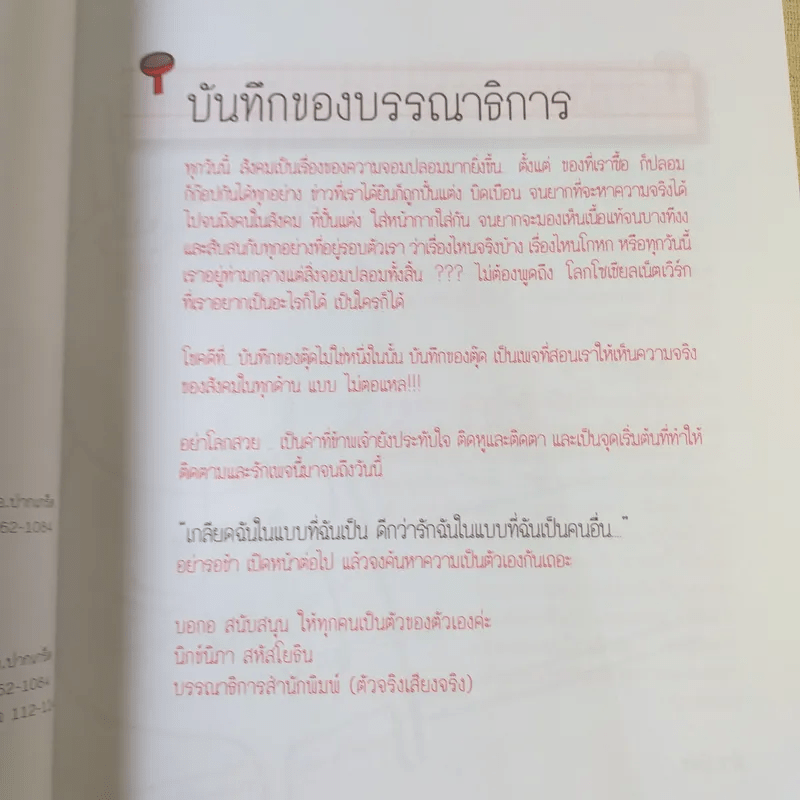 บันทึกของบรรณาธิการ
ทุกวันนี้ สังคมเป็นเรื่องของความจอมปลอมมากยิ่งขึ้น.. ตั้งแต่ ของที่เราซื้อ ก็ปลอม
ก็ก๊อปกันได้ทุกอย่าง ข่าวที่เราได้ยินก็ถูกปั้นแต่ง บิดเบือน จนยากที่จะหาความจริงได้
ไปจนถึงคนในสังคม ที่ปั้นแต่ง ใส่หน้ากากใส่กัน จนยากจะมองเห็นเนื้อแท้จนบางทีงง
และสับสนกับทุกอย่างที่อยู่รอบตัวเรา ว่าเรื่องไหนจริงบ้าง เรื่องไหนโกหก หรือทุกวันนี้
เราอยู่ท่ามกลางแต่สิ่งจอมปลอมทั้งสิ้น ??? ไม่ต้องพูดถึง โลกโซเชียลเน็ตเวิร์ก
ที่เราอยากเป็นอะไรก็ได้ เป็นใครก็ได้
โชคดีที่.. บันทึกของตุ๊ดไม่ใช่หนึ่งในนั้น บันทึกของตุ๊ด เป็นเพจที่สอนเราให้เห็นความจริง
ของสังคมในทุกด้าน แบบ ไม่ตอแหล!!!
อย่าโลกสวย ... เป็นคำที่ข้าพเจ้ายังประทับใจ ติดหูและติดตา และเป็นจุดเริ่มต้นที่ทำให้
ติดตามและรักเพจนี้มาจนถึงวันนี้
"เกลียดฉันในแบบที่ฉันเป็น ดีกว่ารักฉันในแบบที่ฉันเป็นคนอื่น..."
อย่ารอช้า เปิดหน้าต่อไป แล้วจงค้นหาความเป็นตัวเองกันเถอะ
บอกอ สนับสนุน ให้ทุกคนเป็นตัวของตัวเองค่ะ
นิกข์นิภา สหัสโยธิน
บรรณาธิการสำนักพิมพ์ (ตัวจริงเสียงจริง)
อ.ปากเกร็ด
52-1084
.ปากเกร็ด
52-1084
112-1